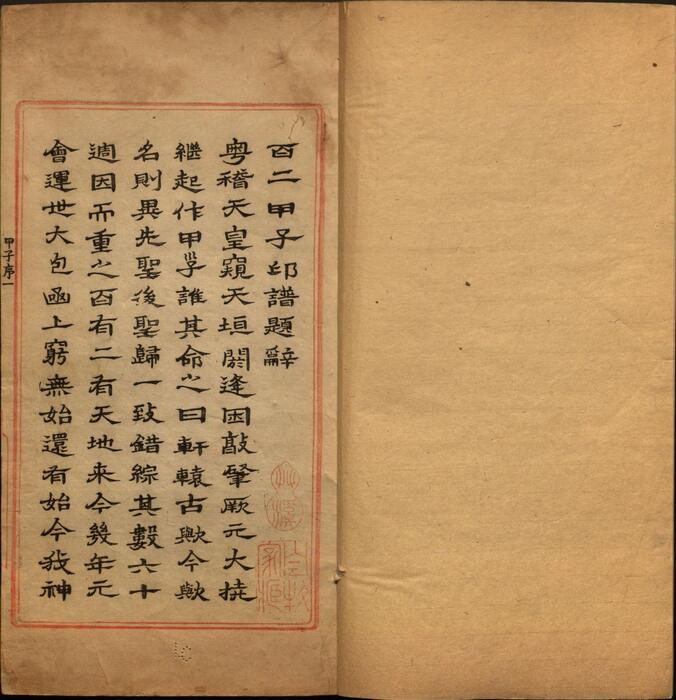 百二甲子印譜題辭
粵稽天皇窺天垣閼逢困敦肇厥元大撓
繼起作甲子誰其命之曰軒轅古歟今歟
名則異先聖後聖歸一致錯綜其數六十
週因而重之百有二有天地來今幾年元
會運世大包函上窮無始還有始今我神
甲子序一